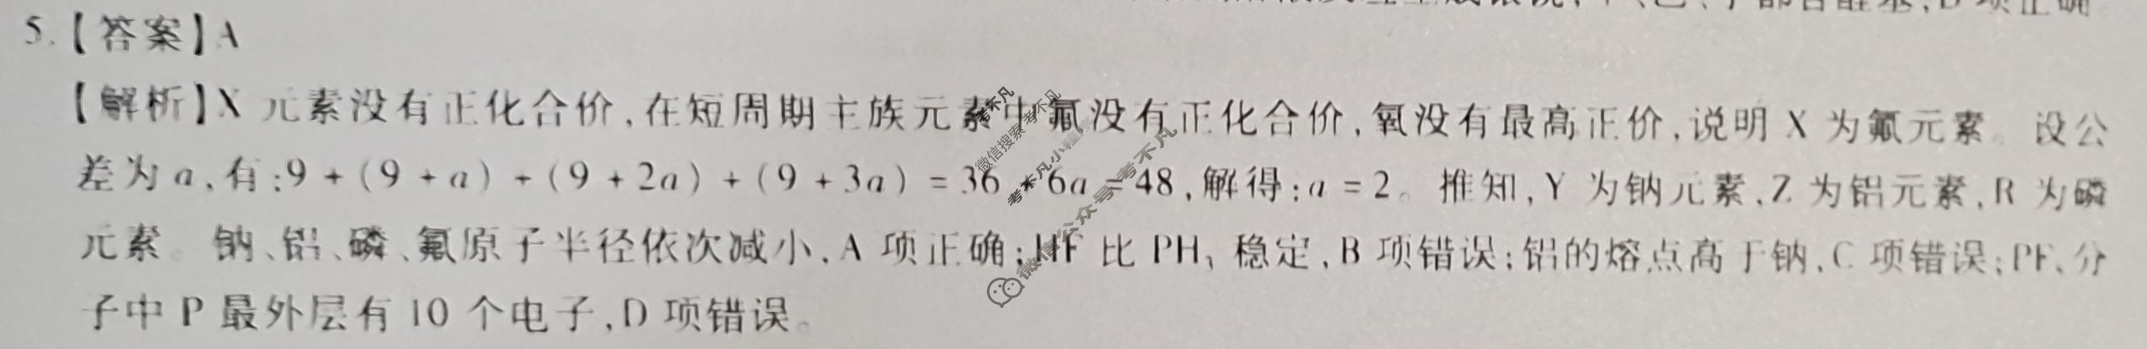 都含醛基,D 项正确
5.【答案】A
【解析】X 元素没有正化合价,在短周期主族元素中氟没有正化合价,氧没有最高正价,说明 X 为氟元素。设公
差为 a,有:9 + (9 + a) + (9 + 2a) + (9 + 3a) = 36 + 6a = 48,解得:a = 2。推知,Y 为钠元素,Z 为铝元素,R 为磷
元素。钠、铝、磷、氟原子半径依次减小,A 项正确;HF 比 PH₃ 稳定,B 项错误;铝的熔点高于钠,C 项错误;PF₅分
子中 P 最外层有 10 个电子,D 项错误。
考不凡
微信搜索考不凡
考不凡小程序
微信公众号:考不凡